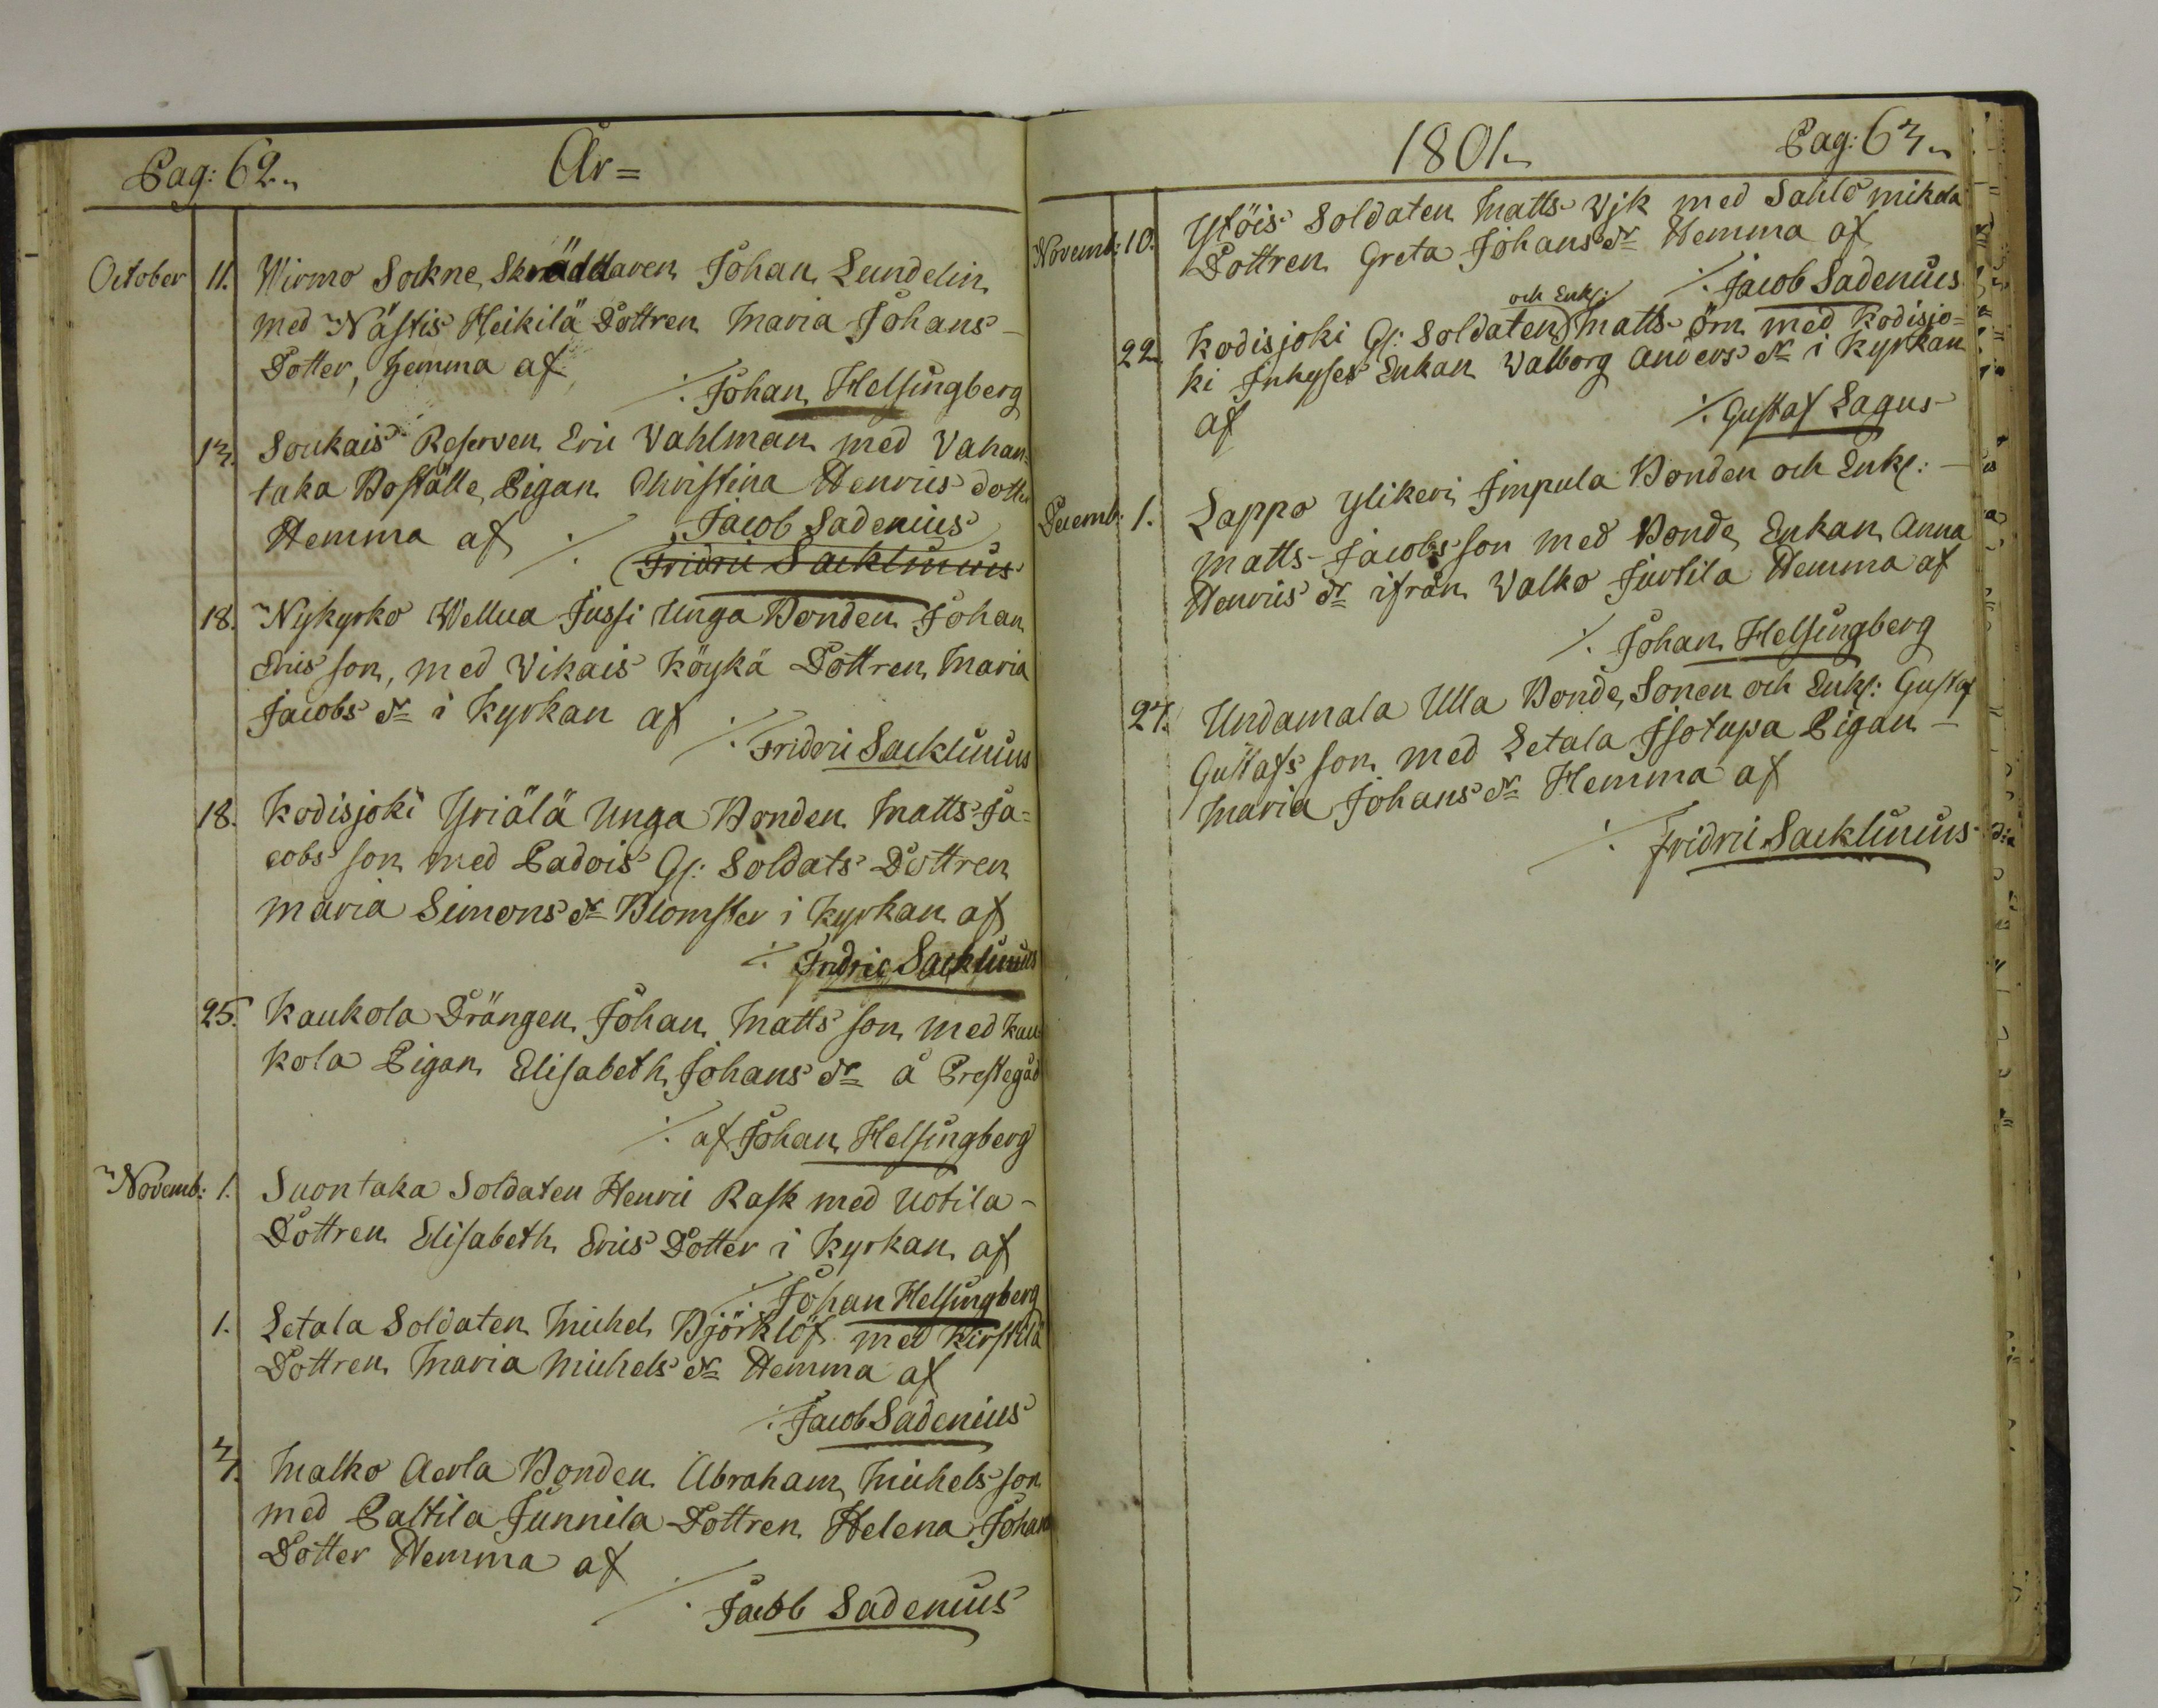 Pag: 62.
År=
October 11. Wirmo Sockne Skräddaren Johan Lundelin
med Nästis Heikilä Dottren Maria Johans-
Dotter, hemma af
./. Johan Helsingberg
13. Soukais Reserven Eric Vahlman med Vahan-
taka Boställe Pigan Christina Henrics dotter
Hemma af ./. Jacob Sadenius
Fridric Sacklinius
18. Nykyrko Wellua Jussi Unga Bonden Johan
Erics son, med Vikais Köykä Dottren Maria
Jacobs dr i Kyrkan af
./. Fridric Sacklinius
18. Kodisjoki Yriälä Unga Bonden Matts Ja=
cobs son med Padois Gl: Soldats Dottren
Maria Simons dr Blomster i Kyrkan af
./. Fridric Sacklinius
25. Kaukola Drängen Johan Matts son med Kau-
kola Pigan Elisabeth Johans dr å Prestegåd
./. af Johan Helsingberg
Novemb: 1. Suontaka Soldaten Henric Rask med Uotila-
Dottren Elisabeth Erics Dotter i Kyrkan af
./. Johan Helsingberg
1. Letala Soldaten Michel Björklöf med Kirstilä
Dottren Maria Michels dr Hemma af
./. Jacob Sadenius
3. Malko Aerla Bonden Abraham Michels son
med Paltila Junnila Dottren Helena Johans
Dotter Hemma af
./. Jacob Sadenius
1801.
Pag: 63.
Novemb: 10. Ylöis Soldaten Matts Vjk med Sahlo mikola
Dottren Greta Johans dr Hemma af
./. Jacob Sadenius
och Enkl:
22. Kodisjoki Gl: Soldaten Matts Örn med Kodisjo=
ki Inhyses Enkan Valborg Anders dr i Kyrkan
af
./. Gustaf Lagus
Decemb: 1. Lappo Ylikeri Impula Bonden och Enkl: -
Matts Jacobs son med Bonde Enkan Anna
Henrics dr ifrån Valko Jurtila Hemma af
./. Johan Helsingberg
27. Undamala Ulla Bonde Sonen och Enkl: Gustaf
Gustafs son med Letala Isotupa Pigan -
Maria Johans dr Hemma af
./. Fridric Sacklinius